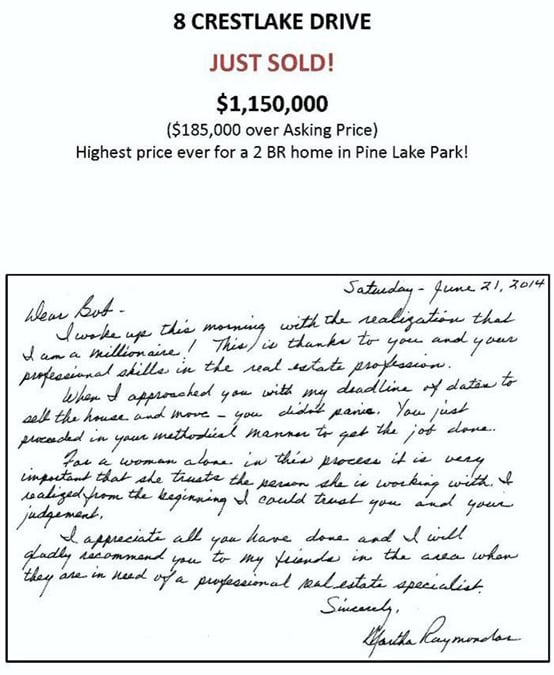 8 CRESTLAKE DRIVE
JUST SOLD!
$1,150,000
($185,000 over Asking Price)
Highest price ever for a 2 BR home in Pine Lake Park!
Saturday - June 21, 2014
Dear Bob -
I woke up this morning with the realization that
I am a millionaire! This is thanks to you and your
professional skills in the real estate profession.
When I approached you with my deadline of dates to
sell the house and move - you didn't panic. You just
proceeded in your methodical manner to get the job done.
For a woman alone in this process it is very
important that she trusts the person she is working with. I
realized from the beginning I could trust you and your
judgement.
I appreciate all you have done and I will
gladly recommend you to my friends in the area when
they are in need of a professional real estate specialist.
Sincerely,
Martha Raymondos